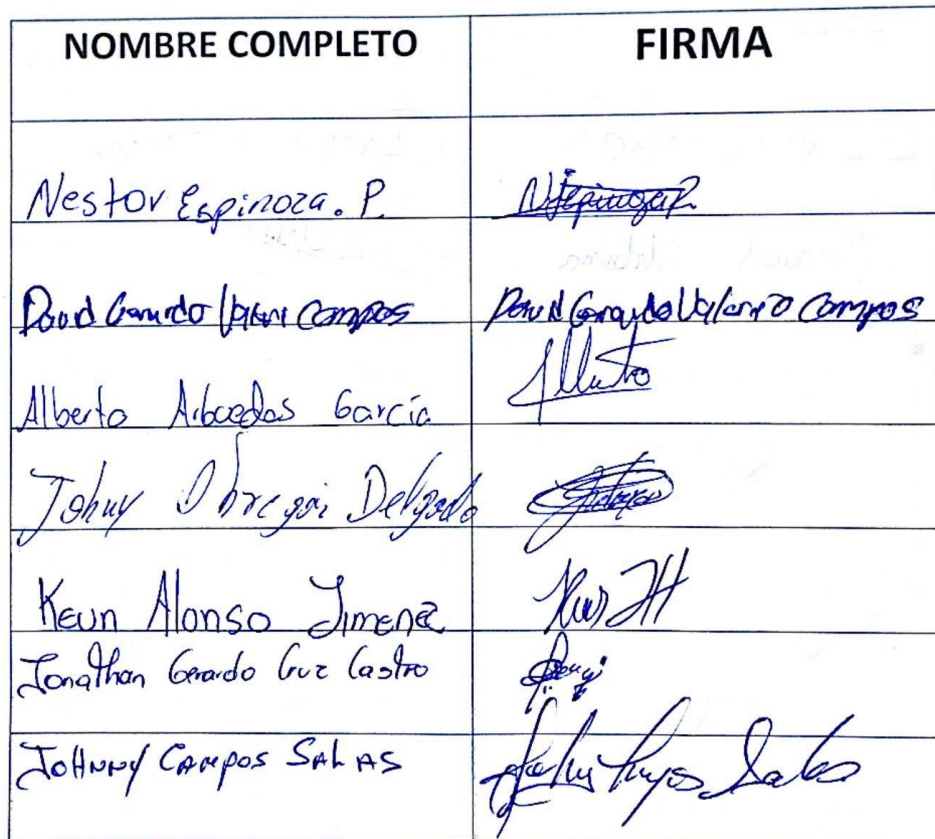 NOMBRE COMPLETO FIRMA
Nestor Espinoza. P. NEspinozaP.
David Gerardo Valerio Campos David Gerardo Valerio Campos
Alberto Arboedas García Alberto
Johny Obregon Delgado
Kevin Alonso Jimenez
Jonathan Gerardo Cruz Castro
JOHNNY CAMPOS SALAS Salas